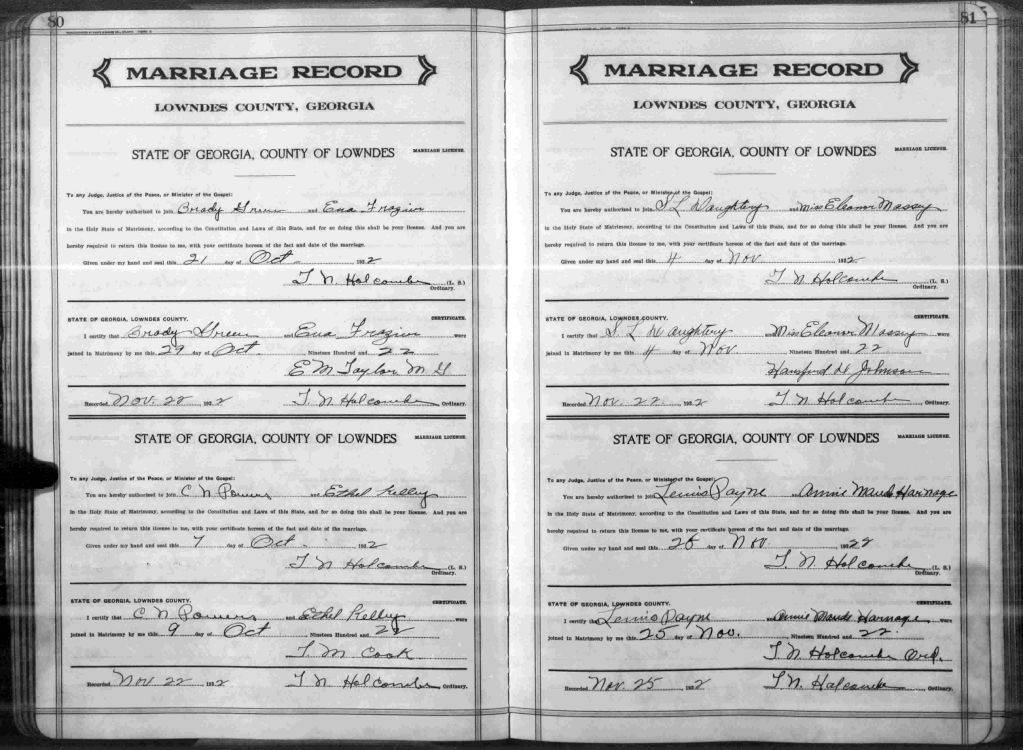 80
MARRIAGE RECORD
LOWNDES COUNTY, GEORGIA
STATE OF GEORGIA, COUNTY OF LOWNDES MARRIAGE LICENSE.
To any Judge, Justice of the Peace, or Minister of the Gospel:
You are hereby authorized to join Brady Green and Ena Frazier
in the Holy State of Matrimony, according to the Constitution and Laws of this State, and for so doing this shall be your license. And you are
hereby required to return this license to me, with your certificate hereon of the fact and date of the marriage.
Given under my hand and seal this 21 day of Oct. 1922
T. N. Holcombe (L. S.)
Ordinary.
STATE OF GEORGIA, LOWNDES COUNTY. CERTIFICATE.
I certify that Brady Green and Ena Frazier were
joined in Matrimony by me this 29 day of Oct. Nineteen Hundred and 22
E M Taylor M G
Recorded Nov. 1922 T. N. Holcombe, Ordinary.
STATE OF GEORGIA, COUNTY OF LOWNDES MARRIAGE LICENSE.
To any Judge, Justice of the Peace, or Minister of the Gospel:
You are hereby authorized to join C N Powers and Ethel Kelley
in the Holy State of Matrimony, according to the Constitution and Laws of this State, and for so doing this shall be your license. And you are
hereby required to return this license to me, with your certificate hereon of the fact and date of the marriage.
Given under my hand and seal this 7 day of Oct. 1922
T. N Holcombe (L. S.)
Ordinary.
STATE OF GEORGIA, LOWNDES COUNTY. CERTIFICATE.
I certify that C N Powers and Ethel Kelley were
joined in Matrimony by me this 9 day of Oct Nineteen Hundred and 22
T. M. Cook
Recorded Nov 22 1922 T. N Holcombe, Ordinary.
81
MARRIAGE RECORD
LOWNDES COUNTY, GEORGIA
STATE OF GEORGIA, COUNTY OF LOWNDES MARRIAGE LICENSE.
To any Judge, Justice of the Peace, or Minister of the Gospel:
You are hereby authorized to join S L Daughtery and Miss Eleanor Massey
in the Holy State of Matrimony, according to the Constitution and Laws of this State, and for so doing this shall be your license. And you are
hereby required to return this license to me, with your certificate hereon of the fact and date of the marriage.
Given under my hand and seal this 4 day of Nov. 1922
T. N. Holcombe (L. S.)
Ordinary.
STATE OF GEORGIA, LOWNDES COUNTY. CERTIFICATE.
I certify that S. L Daughtery and Miss Eleanor Massey were
joined in Matrimony by me this 4 day of Nov Nineteen Hundred and 22
Hansford D Johnson
Recorded Nov. 22 1922 T. N Holcombe, Ordinary.
STATE OF GEORGIA, COUNTY OF LOWNDES MARRIAGE LICENSE.
To any Judge, Justice of the Peace, or Minister of the Gospel:
You are hereby authorized to join Lewis Payne and Annie Maude Harnage
in the Holy State of Matrimony, according to the Constitution and Laws of this State, and for so doing this shall be your license. And you are
hereby required to return this license to me, with your certificate hereon of the fact and date of the marriage.
Given under my hand and seal this 25 day of Nov 1922
T. N. Holcombe (L. S.)
Ordinary.
STATE OF GEORGIA, LOWNDES COUNTY. CERTIFICATE.
I certify that Lewis Payne and Annie Maude Harnage were
joined in Matrimony by me this 25 day of Nov. Nineteen Hundred and 22
T. N Holcombe Ord.
Recorded Nov. 25 1922 T. N. Holcombe, Ordinary.